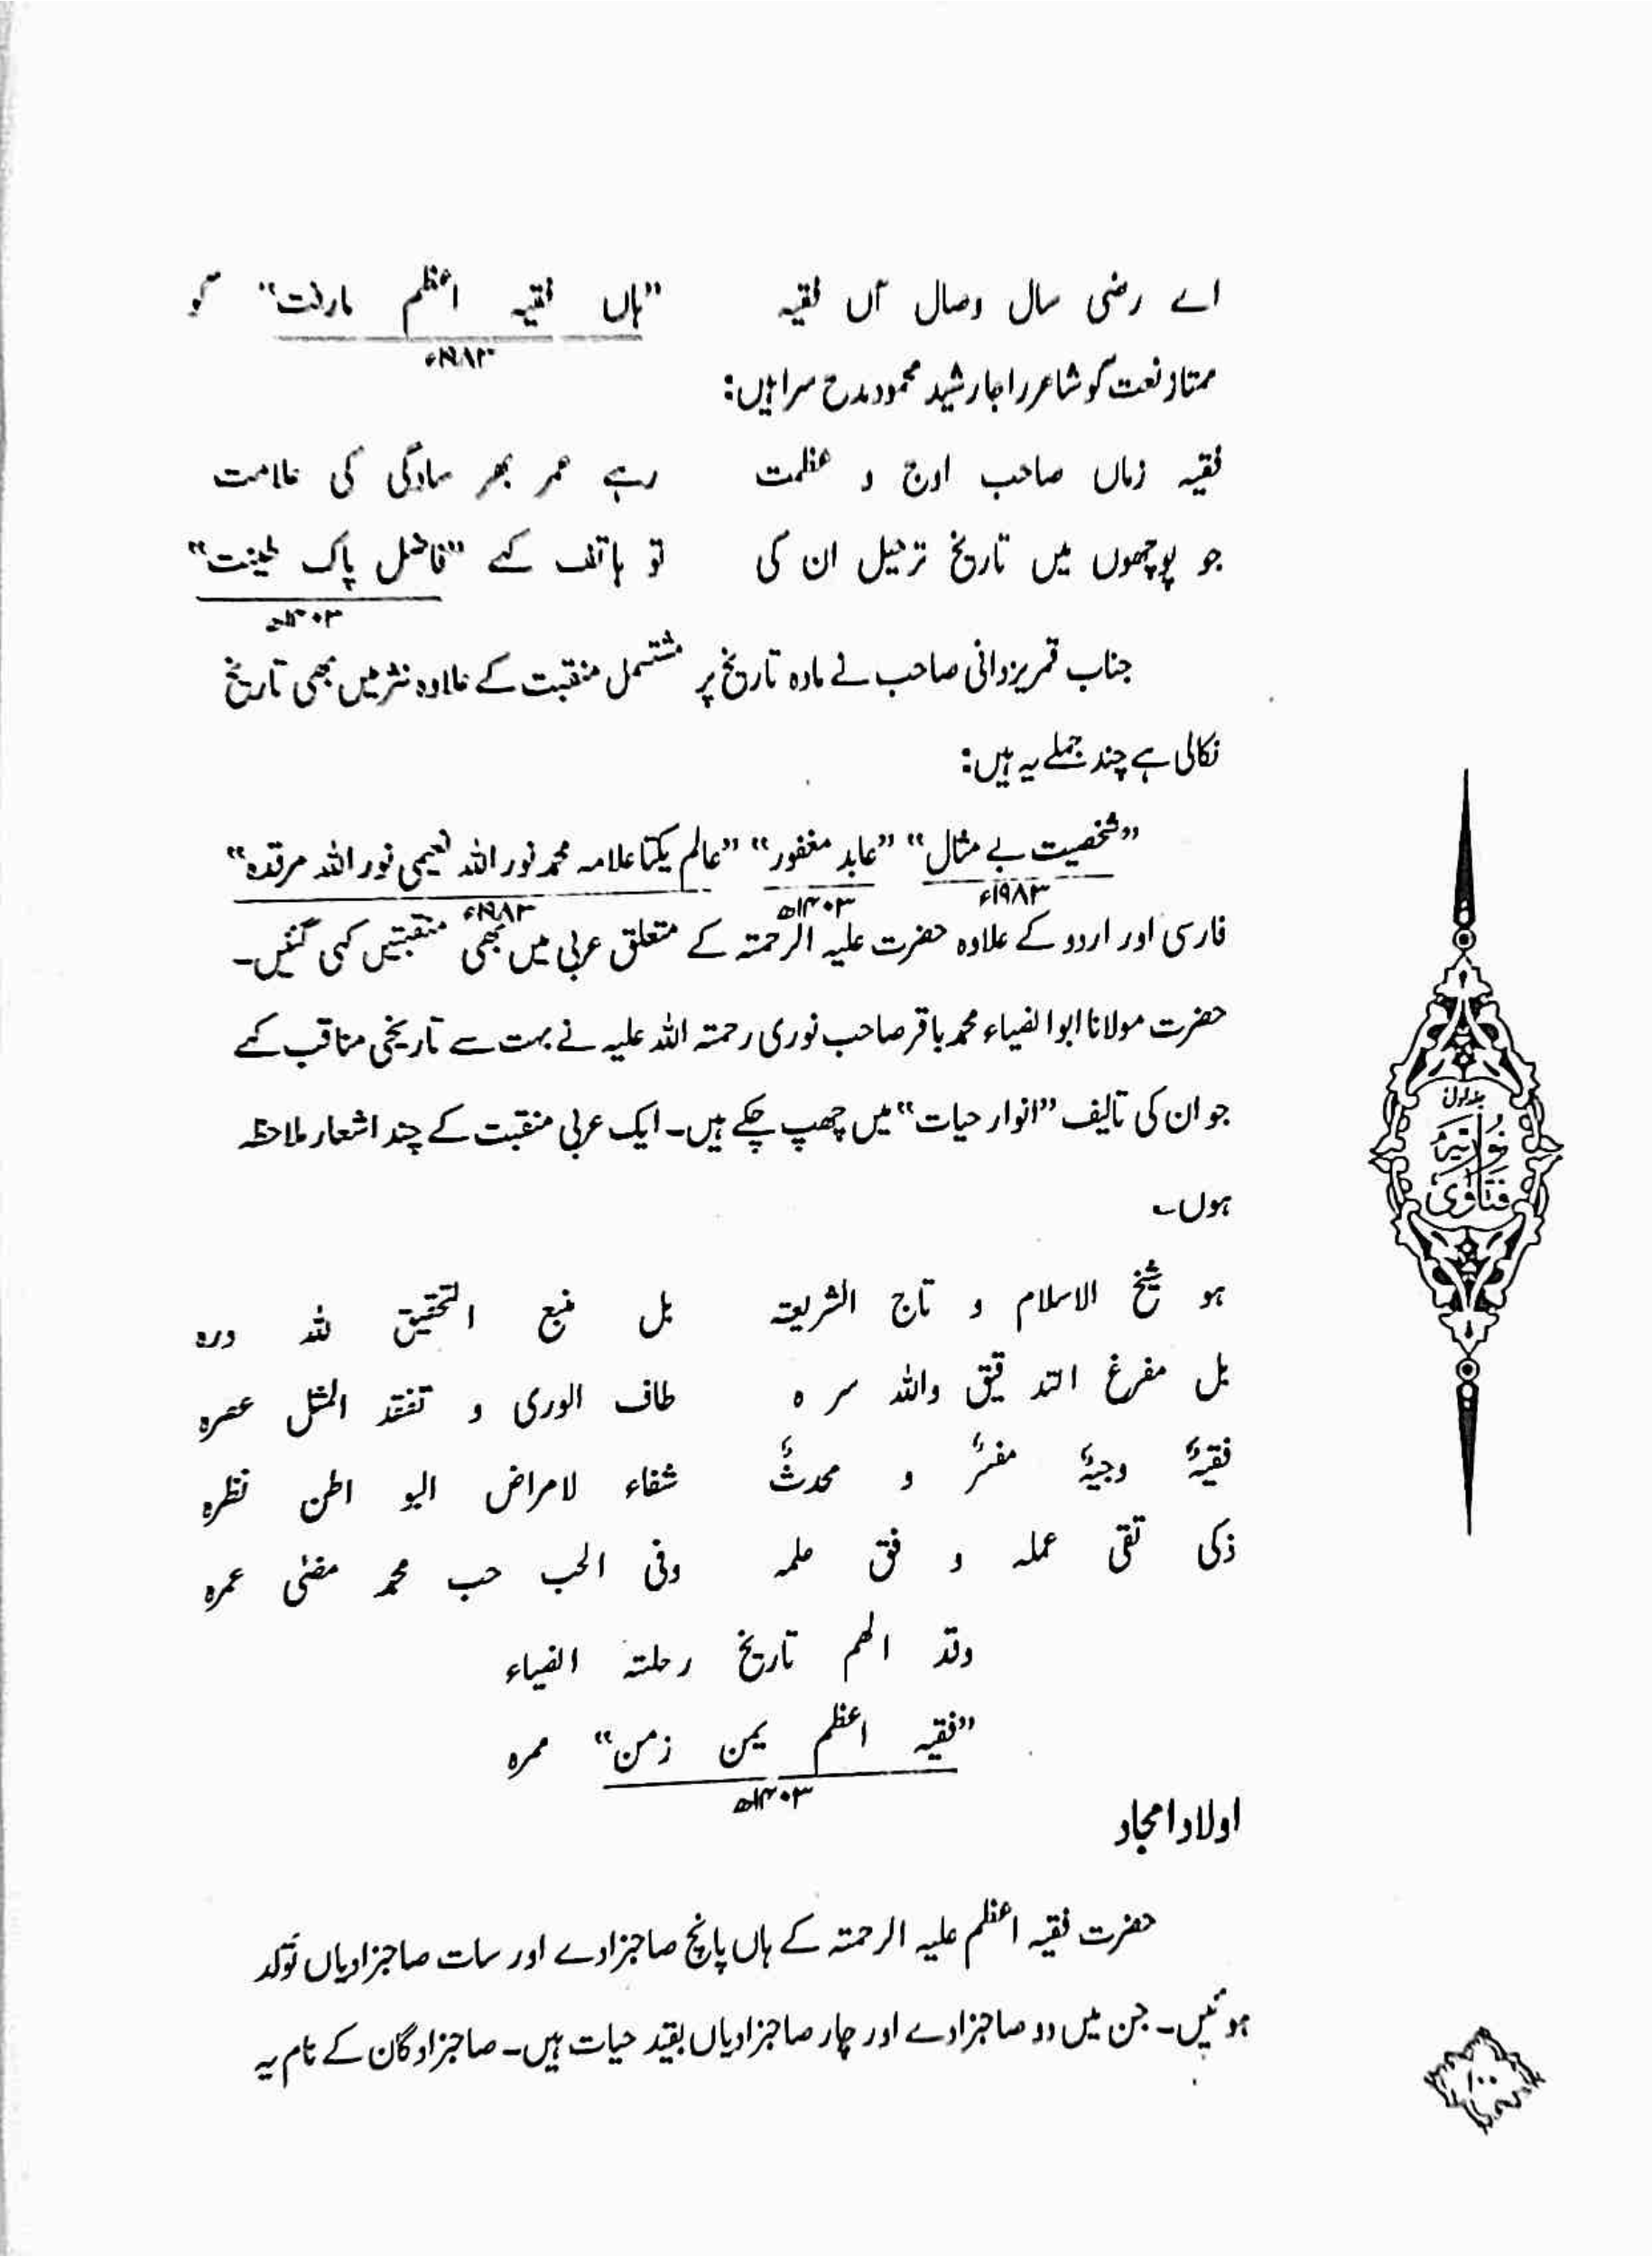 اے رضی سال وصال آں فقیہ "ہاں فقیہ اعظم مارفت" گو
۱۹۸۳ء
ممتاز نعت گو شاعر راجا رشید محمود مدح سرا ہیں:
فقیہ زماں صاحب اوج و عظمت رہے عمر بھر سادگی کی علامت
جو پوچھوں میں تاریخ ترحیل ان کی تو ہاتف کہے "فاضل پاک طینت"
۱۴۰۳ھ
جناب قمر یزدانی صاحب نے مادہ تاریخ پر مشتمل منقبت کے علاوہ نثر میں بھی تاریخ
نکالی ہے چند جملے یہ ہیں:
"شخصیت بے مثال" "عابد مغفور" "عالم یکتا علامہ محمد نور اللہ نعیمی نور اللہ مرقدہ"
۱۹۸۳ء ۱۴۰۳ھ ۱۹۸۳ء
فارسی اور اردو کے علاوہ حضرت علیہ الرحمتہ کے متعلق عربی میں بھی منقبتیں کہی گئیں۔
حضرت مولانا ابو الضیاء محمد باقر صاحب نوری رحمتہ اللہ علیہ نے بہت سے تاریخی مناقب کہے
جو ان کی تالیف "انوار حیات" میں چھپ چکے ہیں۔ ایک عربی منقبت کے چند اشعار ملاحظہ
ہوں۔
ہو شیخ الاسلام و تاج الشریعتہ بل منبع التحقیق للہ درہ
بل مفرغ التدقیق واللہ سرہ طاف الوری و تفتقد المثل عصرہ
فقیہٌ وجیہٌ مفسرٌ و محدثٌ شفاء لامراض البواطن نظرہ
ذکی تقی عملہ و فق علمہ وفی الحب حب محمد مضیٰ عمرہ
وقد الھم تاریخ رحلتہ الضیاء
"فقیہ اعظم یمن زمن" ممرہ
۱۴۰۳ھ
اولاد امجاد
حضرت فقیہ اعظم علیہ الرحمتہ کے ہاں پانچ صاحبزادے اور سات صاحبزادیاں تولّد
ہوئیں۔ جن میں دو صاحبزادے اور چار صاحبزادیاں بقید حیات ہیں۔ صاحبزادگان کے نام یہ
جلد اول
فتاوی نوریہ
۱۰۰